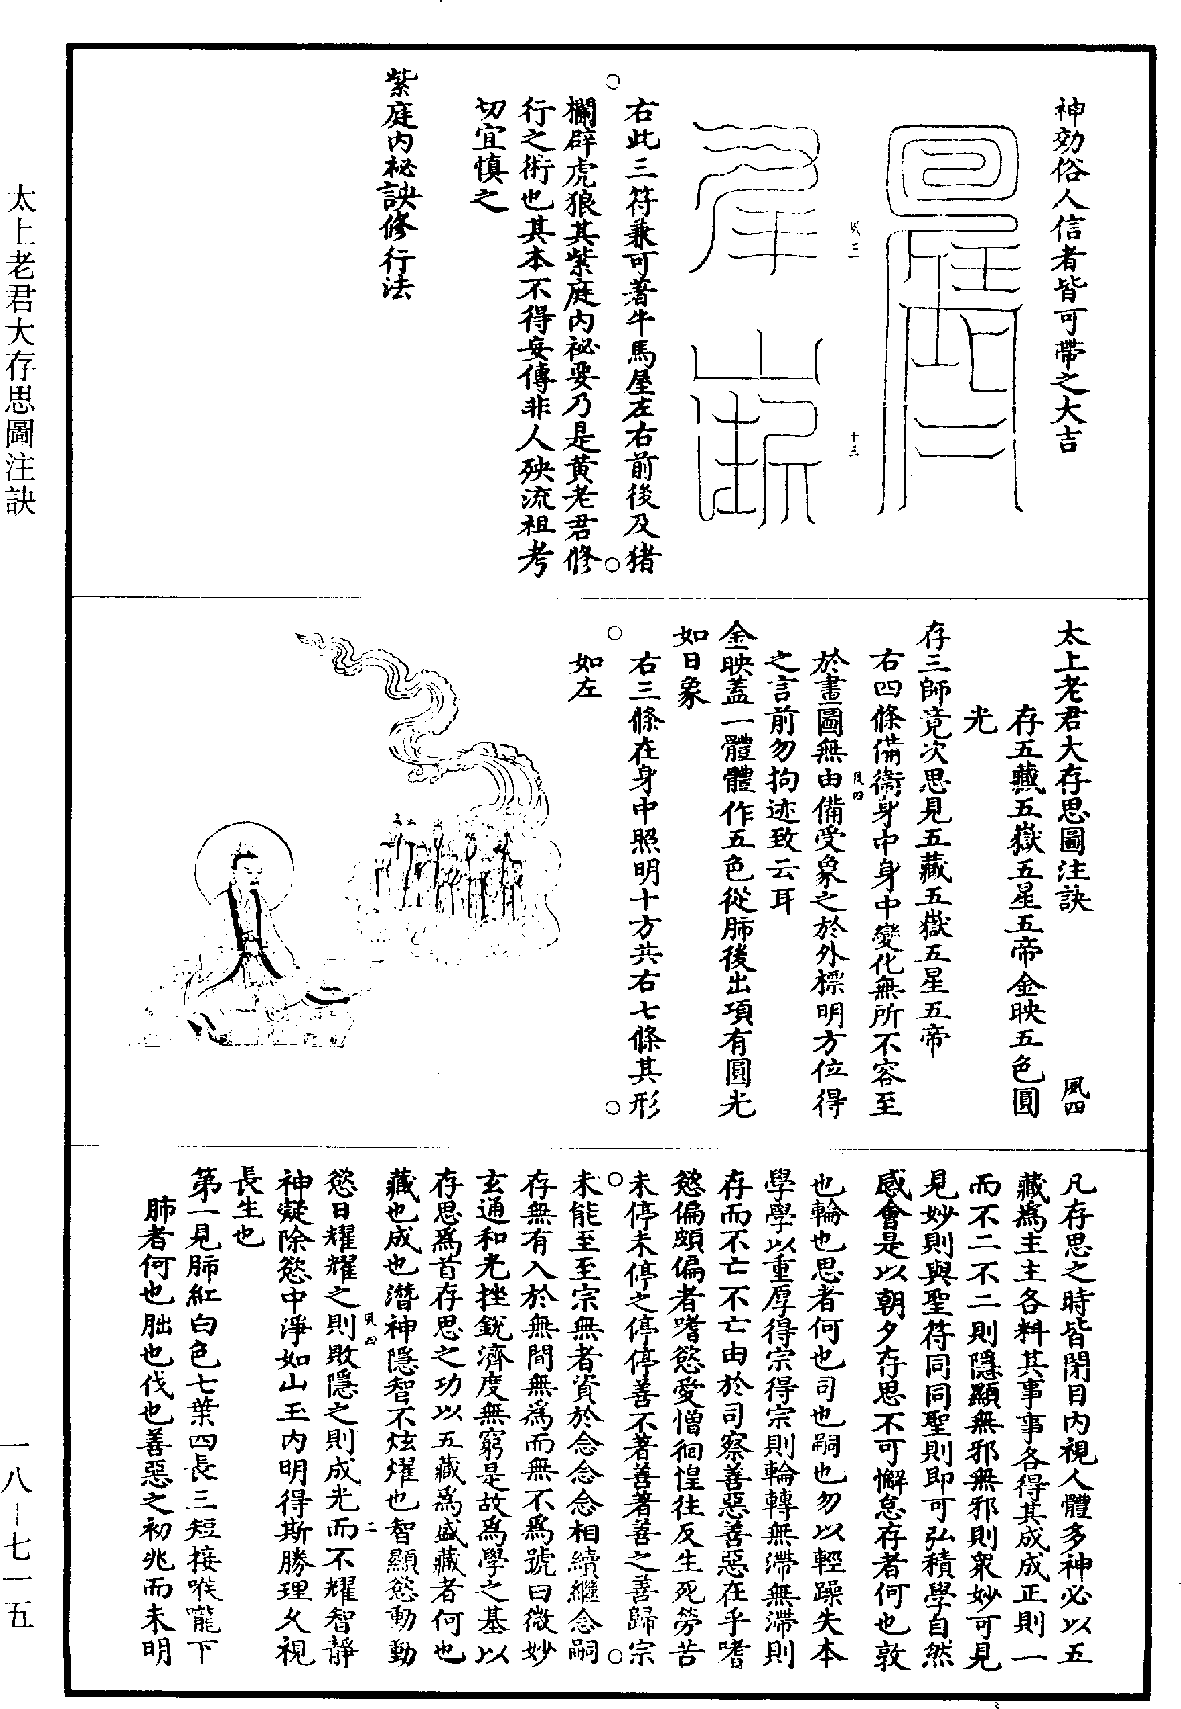 神効俗人信者皆可帶之大吉
風三
十三
右此三符兼可著牛馬屋左右前後及猪
欄辟虎狼其紫庭内祕要乃是黄老君修
行之術也其本不得妄傳非人殃流祖考
切宜慎之
紫庭内祕訣修行法
太上老君大存思圖注訣
風四
存五藏五嶽五星五帝金映五色圓
光
存三師竟次思見五藏五嶽五星五帝
右四條備衛身中身中變化無所不容至
風四
於畫圖無由備受象之於外標明方位得
之言前勿拘迹致云耳
金映蓋一體體作五色從肺後出項有圓光
如日象
右三條在身中照明十方共右七條其形
如左
凡存思之時皆閉目内視人體多神必以五
藏為主主各料其事事各得其成成正則一
而不二不二則隱顯無邪無邪則衆妙可見
見妙則與聖符同同聖則即可弘積學自然
感會是以朝夕存思不可懈怠存者何也敦
也輪也思者何也司也嗣也勿以輕躁失本
學學以重厚得宗得宗則輪轉無滯無滯則
存而不亡不亡由於司察善惡善惡在乎嗜
慾偏頗偏者嗜慾愛憎徊惶往反生死勞苦
未停未停之停停善不著善著善之善歸宗
未能至至宗無者資於念念念相續繼念嗣
存無有入於無間無為而無不為號曰微妙
玄通和光挫銳濟度無窮是故為學之基以
存思為首存思之功以五藏為盛藏者何也
藏也成也潛神隱智不炫燿也智顯慾動動
風四
二
慾日耀耀之則敗隱之則成光而不耀智靜
神凝除慾中淨如山玉内明得斯勝理久視
長生也
第一見肺紅白色七葉四長三短接喉嚨下
肺者何也朏也伐也善惡之初兆而未明
太上老君大存思圖注訣
一八-七一五